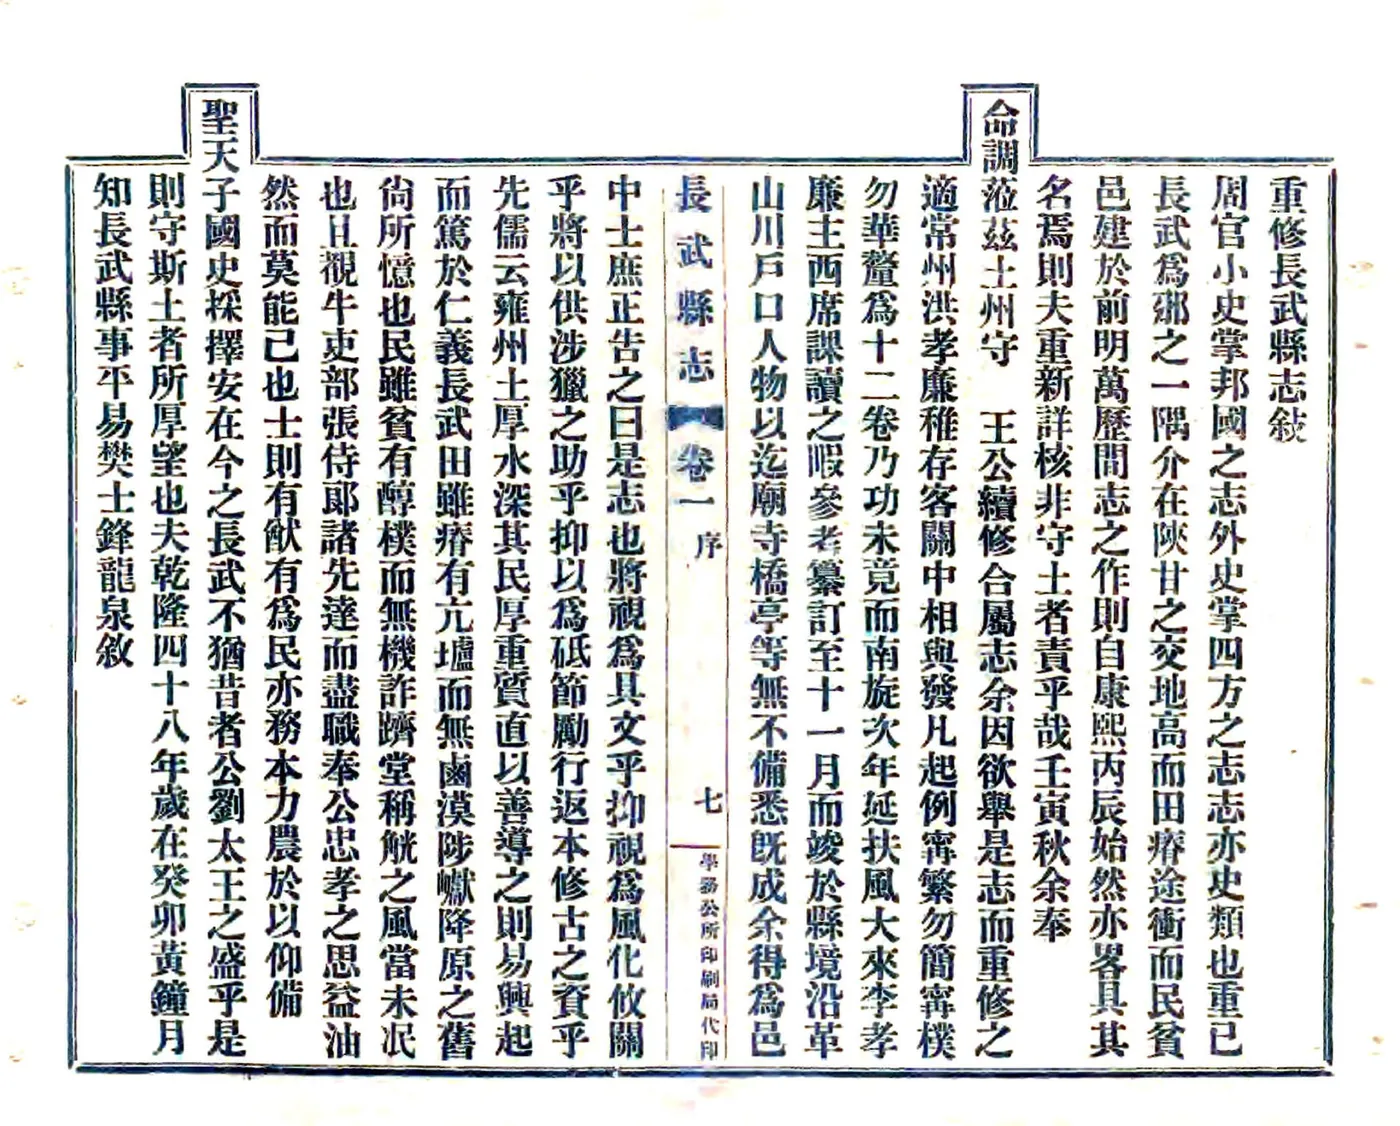 重修長武縣志敍
周官小史掌邦國之志外史掌四方之志志亦史類也重已
長武爲豳之一隅介在陝甘之交地高而田瘠途衝而民貧
邑建於前明萬歷間志之作則自康熙丙辰始然亦畧具其
名焉則夫重新詳核非守土者責乎哉壬寅秋余奉
命調蒞玆土州守 王公續修合屬志余因欲舉是志而重修之
適常州洪孝廉稚存客關中相與發凡起例寗繁勿簡寗樸
勿華釐爲十二卷乃功未竟而南旋次年延扶風大來李孝
廉主西席課讀之暇參考纂訂至十一月而竣於縣境沿革
山川戶口人物以迄廟寺橋亭等無不備悉旣成余得爲邑
長武縣志 卷一 序 七 學務公所印刷局代印
中士庶正告之曰是志也將視爲具文乎抑視爲風化攸關
乎將以供涉獵之助乎抑以爲砥節勵行返本修古之資乎
先儒云雍州土厚水深其民厚重質直以善導之則易興起
而篤於仁義長武田雖瘠有亢壚而無鹵漠陟巘降原之舊
尙所憶也民雖貧有醇樸而無機詐躋堂稱觥之風當未泯
也且覩牛吏部張侍郞諸先達而盡職奉公忠孝之思益油
然而莫能已也士則有猷有爲民亦務本力農於以仰備
聖天子國史採擇安在今之長武不猶昔者公劉太王之盛乎是
則守斯土者所厚望也夫乾隆四十八年歲在癸卯黃鐘月
知長武縣事平易樊士鋒龍泉敘